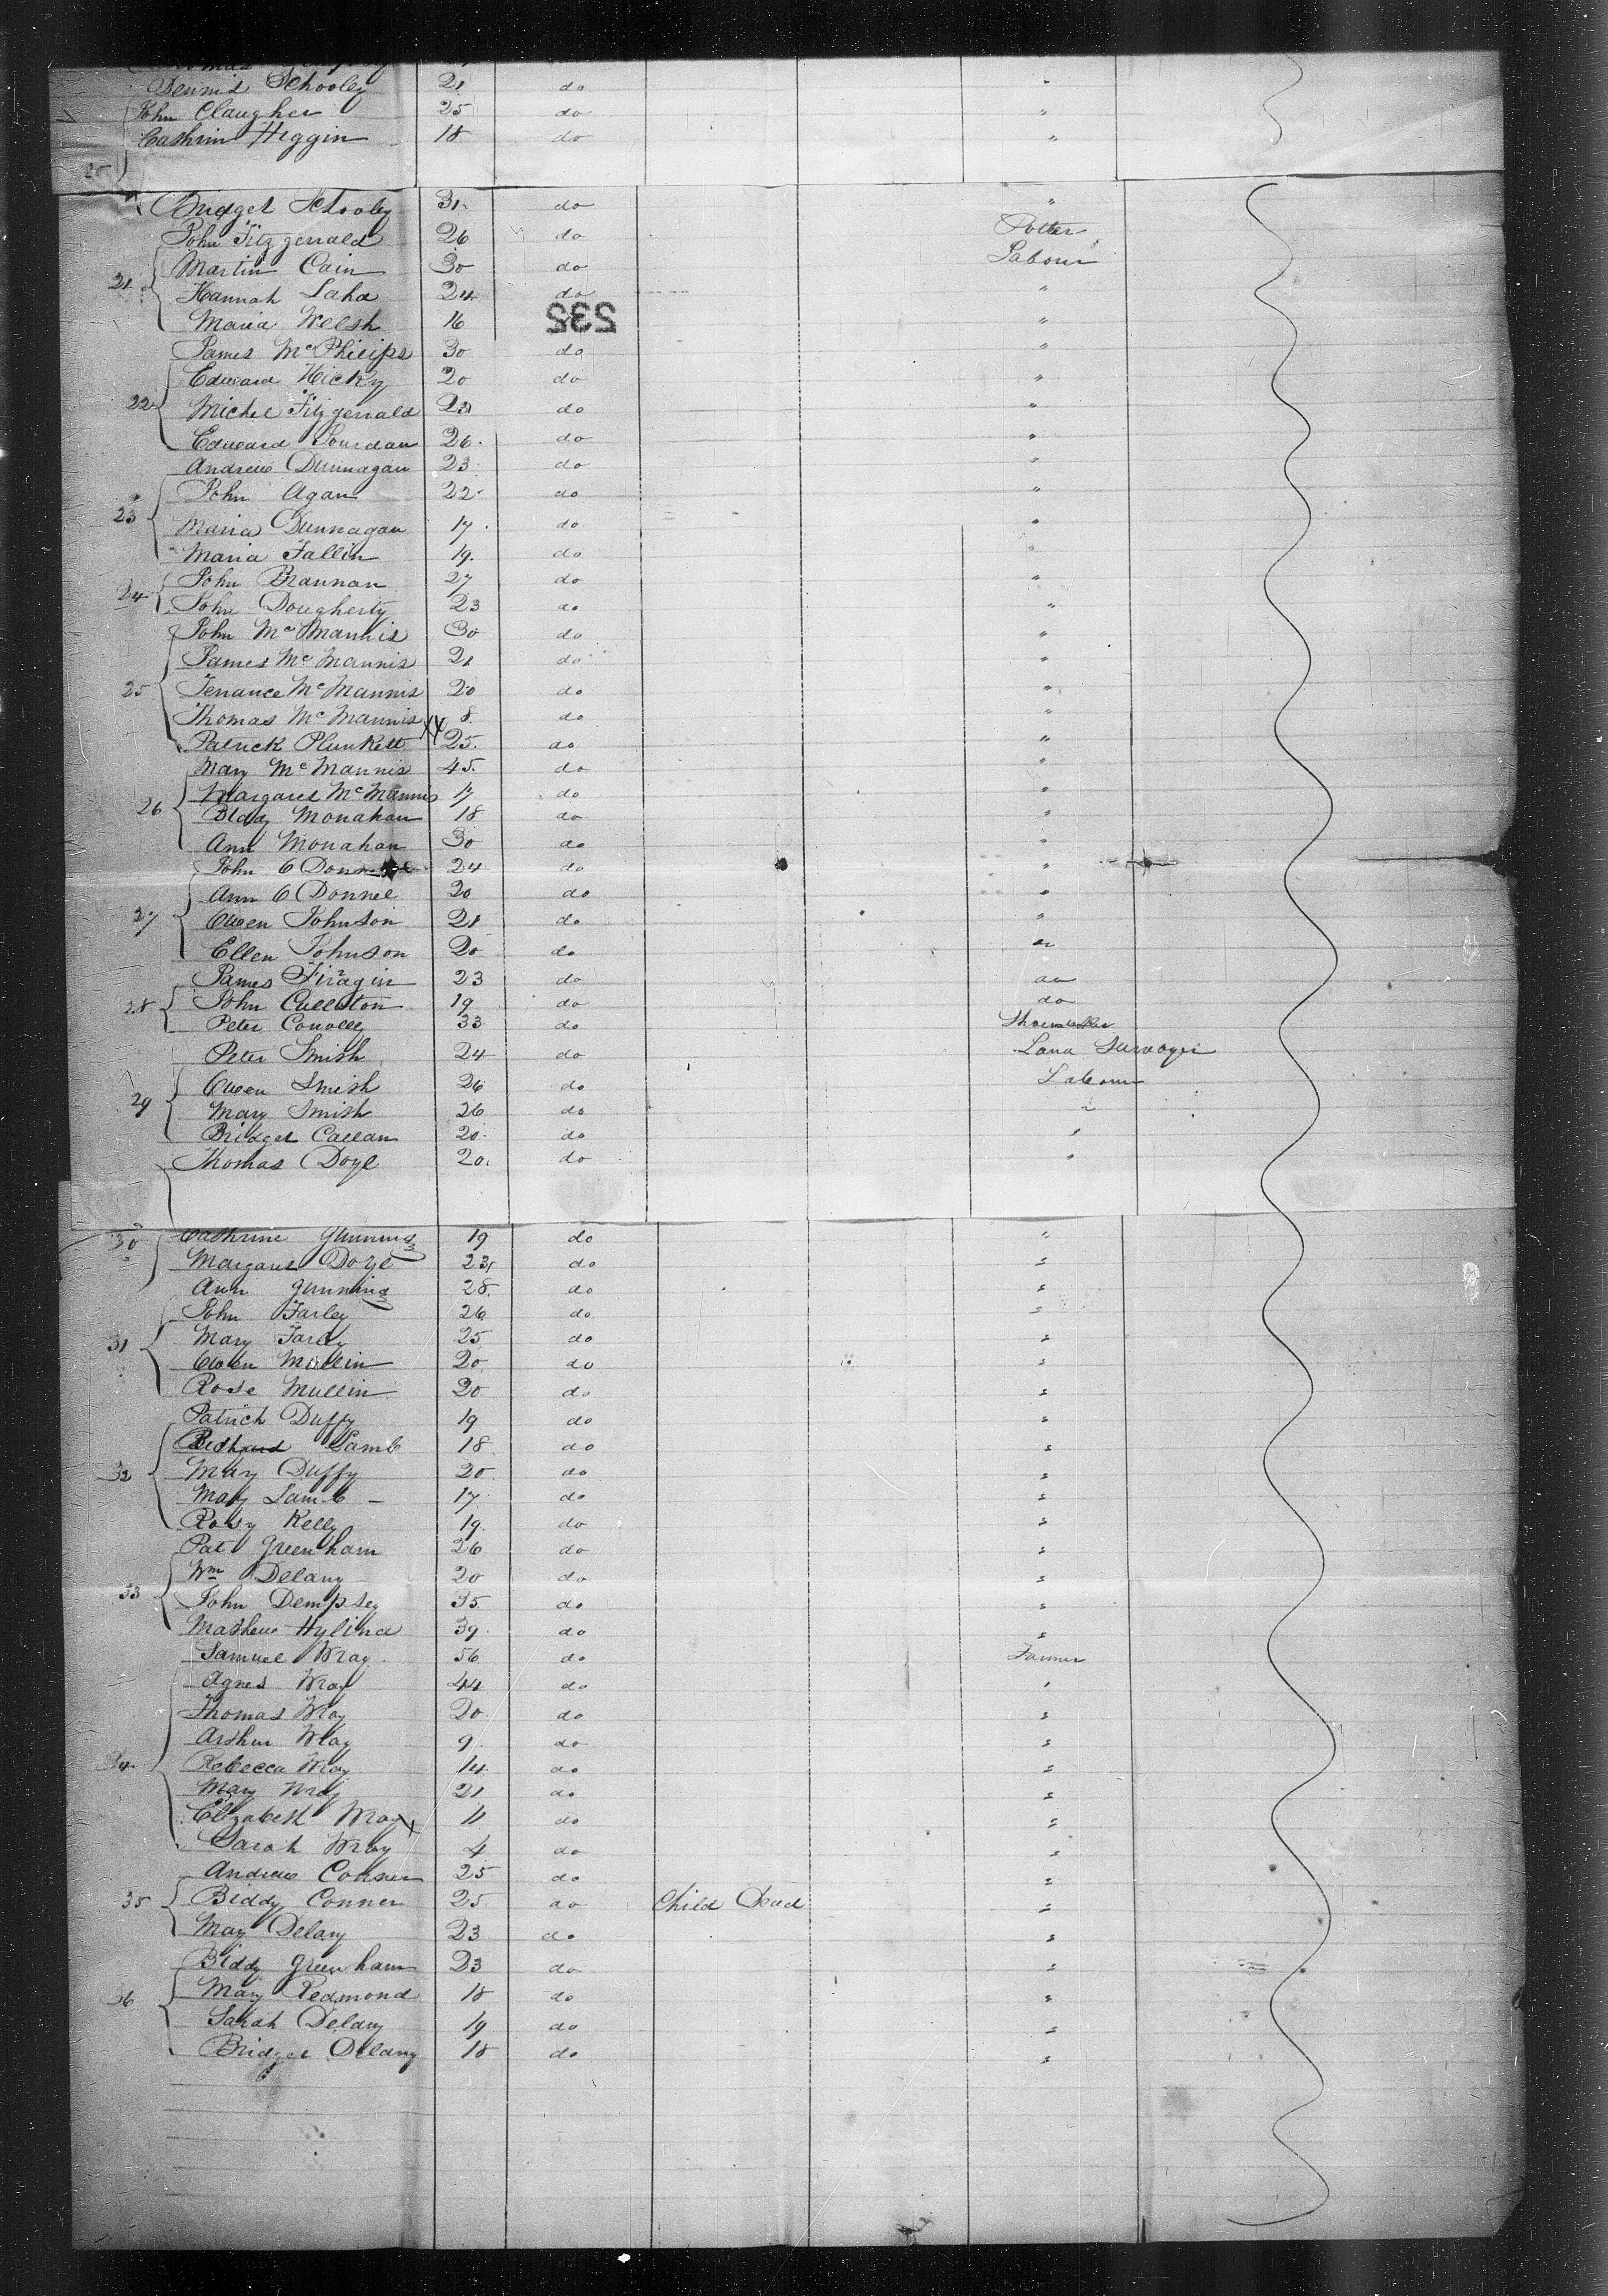 Dennis Schooley 21 do "
John Claugher 25 do "
Cathrin Higgin 18 do "
20
Bridget Schooley 31 do "
John Fitzgerrald 26 do Potter
Martin Cain 30 do Labour
21 Hannah Laha 24 do "
232
Maria Welsh 16 "
James McPhilips 30 do "
Edward Hicky 20 do "
22 Michel Fitzgerrald 23 do "
Edward Jourdan 26 do "
Andrew Dunnagan 23 do "
John Agan 22 do "
23 Maria Dunnagan 17 do "
Maria Fallin 19 do "
John Brannan 27 do "
24 John Dougherty 23 do "
John McMannis 30 do "
James McMannis 21 do "
25 Terrance McMannis 20 do "
Thomas McMannis 8 do "
Patrick Plunkett 25 do "
Mary McMannis 45 do "
Margaret McMannis 17 do "
26 Biddy Monahan 18 do "
Ann Monahan 30 do "
John O Donnel 24 do "
Ann O Donnel 20 do "
27 Owen Johnson 21 do "
Ellen Johnson 20 do "
James Firagin 23 do do
28 John Culliston 19 do do
Peter Conolly 33 do Shoemaker
Peter Smith 24 do Land Surveyor
Owen Smith 26 do Labour
29 Mary Smith 26 do "
Bridget Callan 20 do "
Thomas Doyl 20 do "
30 Cathrine Gunning 19 do "
Margaret Doyl 23 do "
Ann Gunning 28 do "
John Farley 26 do "
31 Mary Farly 25 do "
Owen Mullin 20 do "
Rose Mullin 20 do "
Patrick Duffy 19 do "
Richard Lamb 18 do "
32 Mary Duffy 20 do "
Mary Lamb 17 do "
Rosy Kelly 19 do "
Pat Greenham 26 do "
Wm Delany 20 do "
33 John Dempsey 35 do "
Mathew Hylind 39 do "
Samuel Wray 56 do Farmer
Agnes Wray 44 do "
Thomas Wray 20 do "
Arthur Wray 9 do "
34 Rebecca Wray 14 do "
Mary Wray 21 do "
Elizabeth Wray 11 do "
Sarah Wray 4 do "
Andrew Conner 25 do "
35 Biddy Conner 25 do Child Dead "
Mary Delany 23 do "
Biddy Greenham 23 do "
36 Mary Redmond 18 do "
Sarah Delany 19 do "
Bridget Delany 18 do "